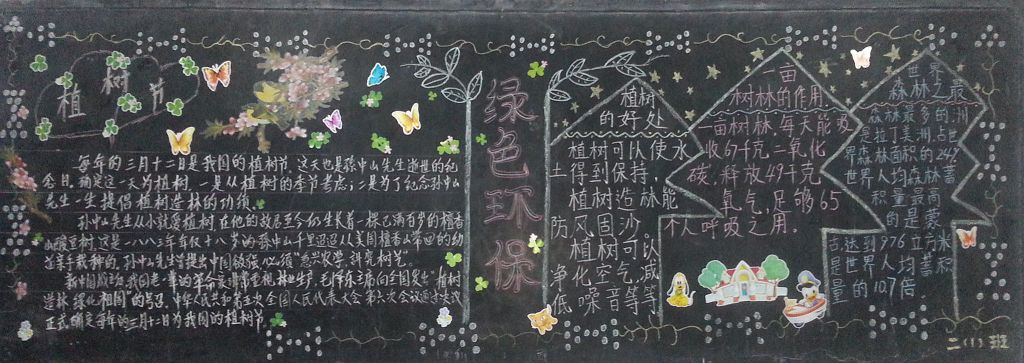 植树节
每年的三月十二日是我国的植树节。这天也是孙中山先生逝世的纪
念日。确定这一天为植树，一是从植树的季节考虑；二是为了纪念孙中山
先生一生提倡植树造林的功绩。
孙中山先生从小就爱植树，在他的故居至今仍生长着一棵已满百岁的檀香
山酸豆树。这是一八八三年年仅十八岁的孙中山千里迢迢从美国檀香山带回的幼
苗亲手栽种的。孙中山先生曾提出中国欲强，必须"急兴农学，讲究树艺。
新中国成立
毛泽东主席向全国发出"植树
造林，绿化祖国"的号召，中华人民共和国第五次全国人民代表大会第六次会议通过决议
正式确定每年的三月十二日为我国的植树节。
绿色环保
植树
的好处
植树可以使水
土得到保持，
植树造林能
防风固沙，
植树可以
净化空气，减
低噪音等等
一亩
树林的作用
一亩树林，每天能吸
收67千克二氧化
碳，释放49千克
氧气，足够65
人呼吸之用。
世界
森林之最
森林最多的洲
是拉丁美洲，占世
界森林面积的24%
世界人均森林蓄
积量的最高
的是蒙
古，达到976立方米
是世界人均蓄积
量的10.7倍。
二(1)班